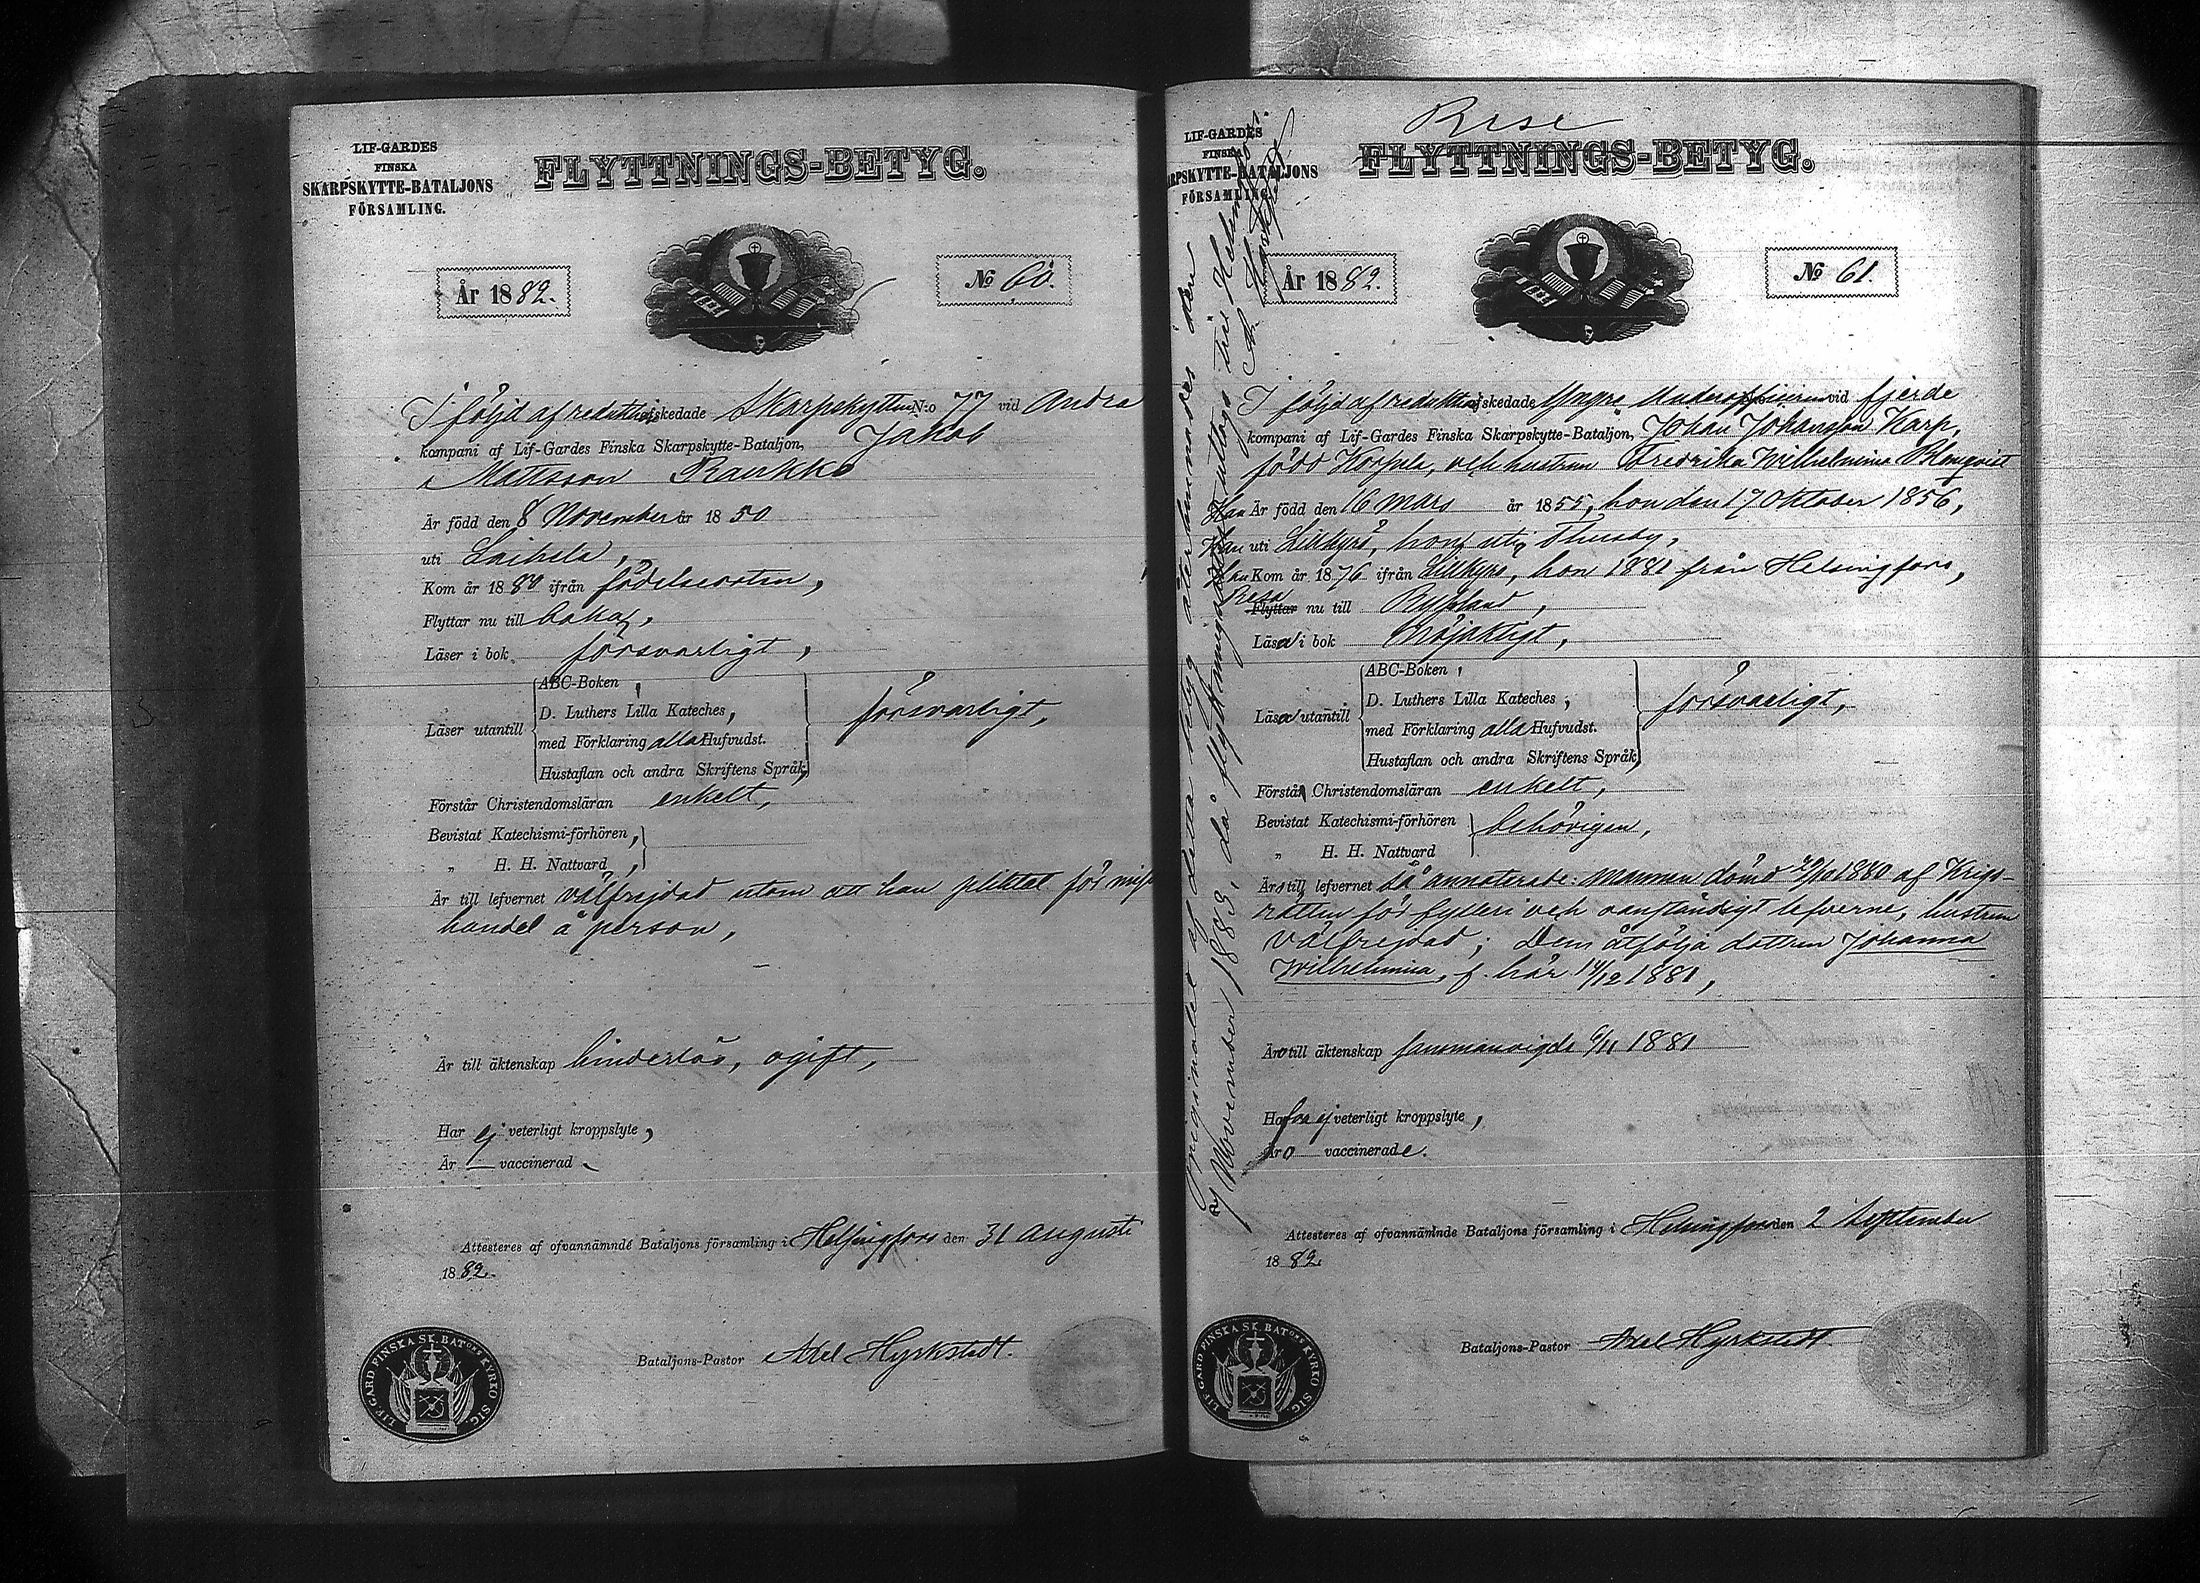 LIF-GARDES
FINSKA
SKARPSKYTTE-BATALJONS
FÖRSAMLING.
FLYTTNINGS-BETYG.
År 1882.
No 60.
I följd af reduktion afskedade Skarpskytten N:o 77 vid Andra
kompani af Lif-Gardes Finska Skarpskytte-Bataljon, Jakob
Mattsson Raukko
Är född den 8 November år 1850
uti Laihela,
Kom år 1880 ifrån födelseorten,
Flyttar nu till baka,
Läser i bok försvarligt,
Läser utantill
ABC-Boken,
D. Luthers Lilla Kateches,
med Förklaring alla Hufvudst.
Hustaflan och andra Skriftens Språk,
försvarligt,
Förstår Christendomsläran enkelt,
Bevistat Katechismi-förhören,
„ H. H. Nattvard,
Är till lefvernet välfrejdad utom att han pliktat för miss
handel å person,
Är till äktenskap hinderlös, ogift,
Har ej veterligt kroppslyte,
Är — vaccinerad
Attesteres af ofvannämnde Bataljons församling i Helsingfors den 31 Augusti
1882.
Bataljons-Pastor Axel Hyrkstedt.
LIF. GARD. FINSKA SK. BATONS KYRKO SIG.
Rese
LIF-GARDES
FINSKA
RPSKYTTE-BATALJONS
FÖRSAMLING.
FLYTTNINGS-BETYG.
År 1882.
No 61.
I följd af reduktion afskedade Yngre Underofficeren vid fjerde
kompani af Lif-Gardes Finska Skarpskytte-Bataljon, Johan Johansson Karp,
född Korpela, och hustrun Fredrika Wilhelmina Blomqvist
Han Är född den 16 Mars år 1855, hon den 17 Oktober 1856,
Han uti Lillkyrö, hon uti Thusby,
Han Kom år 1876 ifrån Lillkyro, hon 1881 från Helsingfors,
resa
Flyttar nu till Ryssland,
Läsa i bok nöjaktigt,
Läsa utantill
ABC-Boken,
D. Luthers Lilla Kateches,
med Förklaring alla Hufvudst.
Hustaflan och andra Skriftens Språk,
försvarligt,
Förstå Christendomsläran enkelt,
Bevistat Katechismi-förhören
„ H. H. Nattvard
behörigen,
Äro till lefvernet så annoterade: mannen dömd /10 1880 af Krigs-
rätten för fylleri och oanständigt lefverne, hustrun
välfrejdad; Dem åtfölja dottren Johanna
Wilhelmina, f. här 14/12 1881,
Äro till äktenskap sammanvigde 6/11 1881
Hafva ej veterligt kroppslyte,
Äro vaccinerade.
Attesteres af ofvannämnde Bataljons församling i Helsingfors den 2 September
1882.
Bataljons-Pastor Axel Hyrkstedt.
LIF. GARD. FINSKA SK. BATONS KYRKO SIG.
Originalet af detta betyg återlemnades den
November 1883, då flyttningsbetyg uttogs till Helsingfors.
A. Hyrkstedt